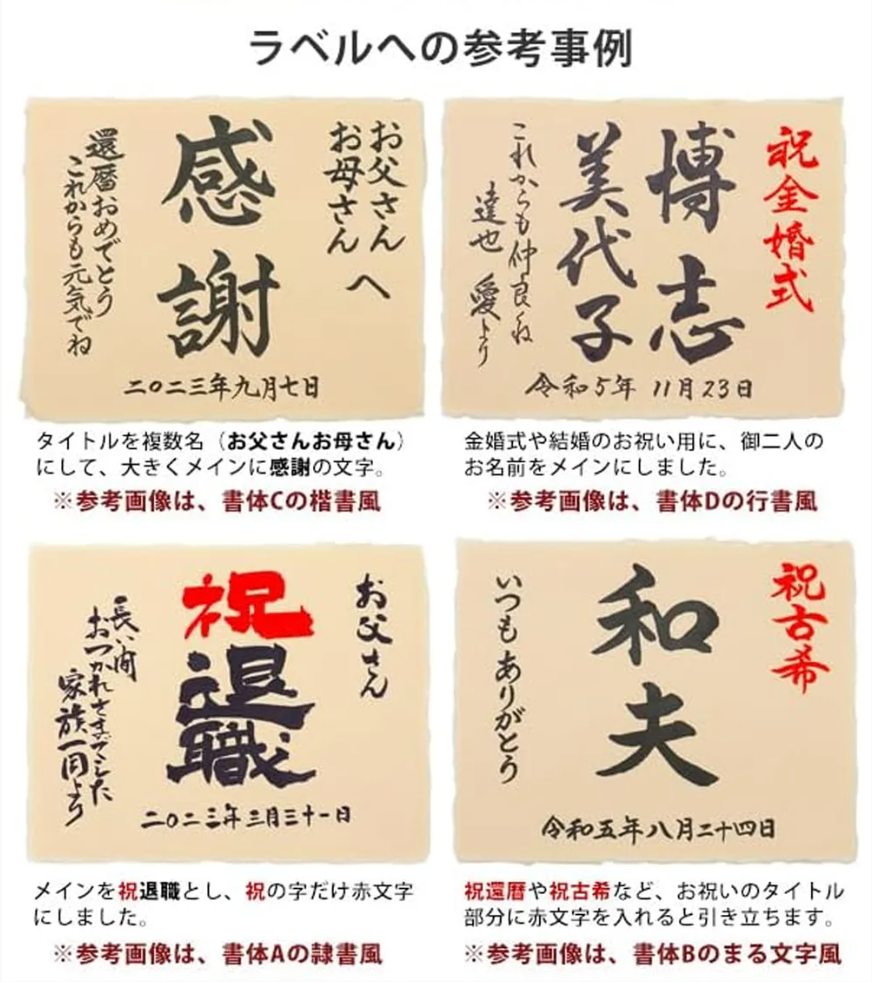 ラベルへの参考事例
お父さん
お母さん へ
感謝
還暦おめでとう
これからも元気でね
二〇二三年九月七日
タイトルを複数名（お父さんお母さん）
にして、大きくメインに感謝の文字。
※参考画像は、書体Cの楷書風
祝金婚式
博志
美代子
これからも仲良くね
達也 愛より
令和5年 11月23日
金婚式や結婚のお祝い用に、御二人の
お名前をメインにしました。
※参考画像は、書体Dの行書風
お父さん
祝退職
長い間
おつかれさまでした
家族一同より
二〇二三年三月三十一日
メインを祝退職とし、祝の字だけ赤文字
にしました。
※参考画像は、書体Aの隷書風
祝古希
和夫
いつもありがとう
令和五年八月二十四日
祝還暦や祝古希など、お祝いのタイトル
部分に赤文字を入れると引き立ちます。
※参考画像は、書体Bのまる文字風